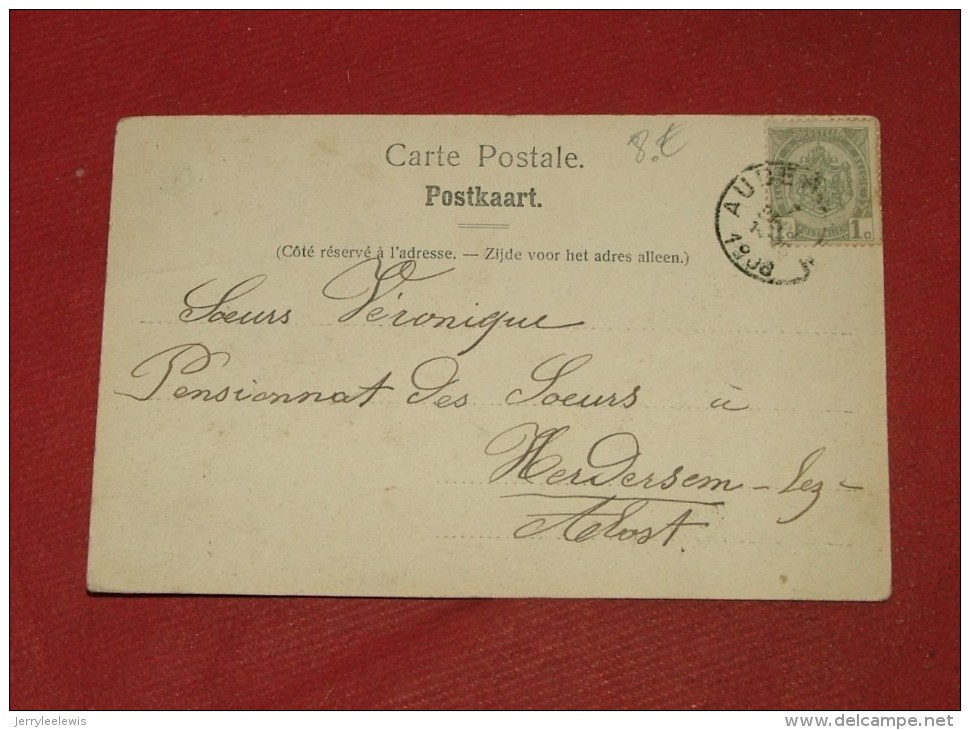 Carte Postale.
Postkaart.
(Côté réservé à l'adresse. — Zijde voor het adres alleen.)
8.€
POSTES
1c 1c
AUDE
1908
Soeurs Véronique
Pensionnat des Soeurs à
Herdersem - lez -
Alost.
Jerryleelewis
www.delcampe.net